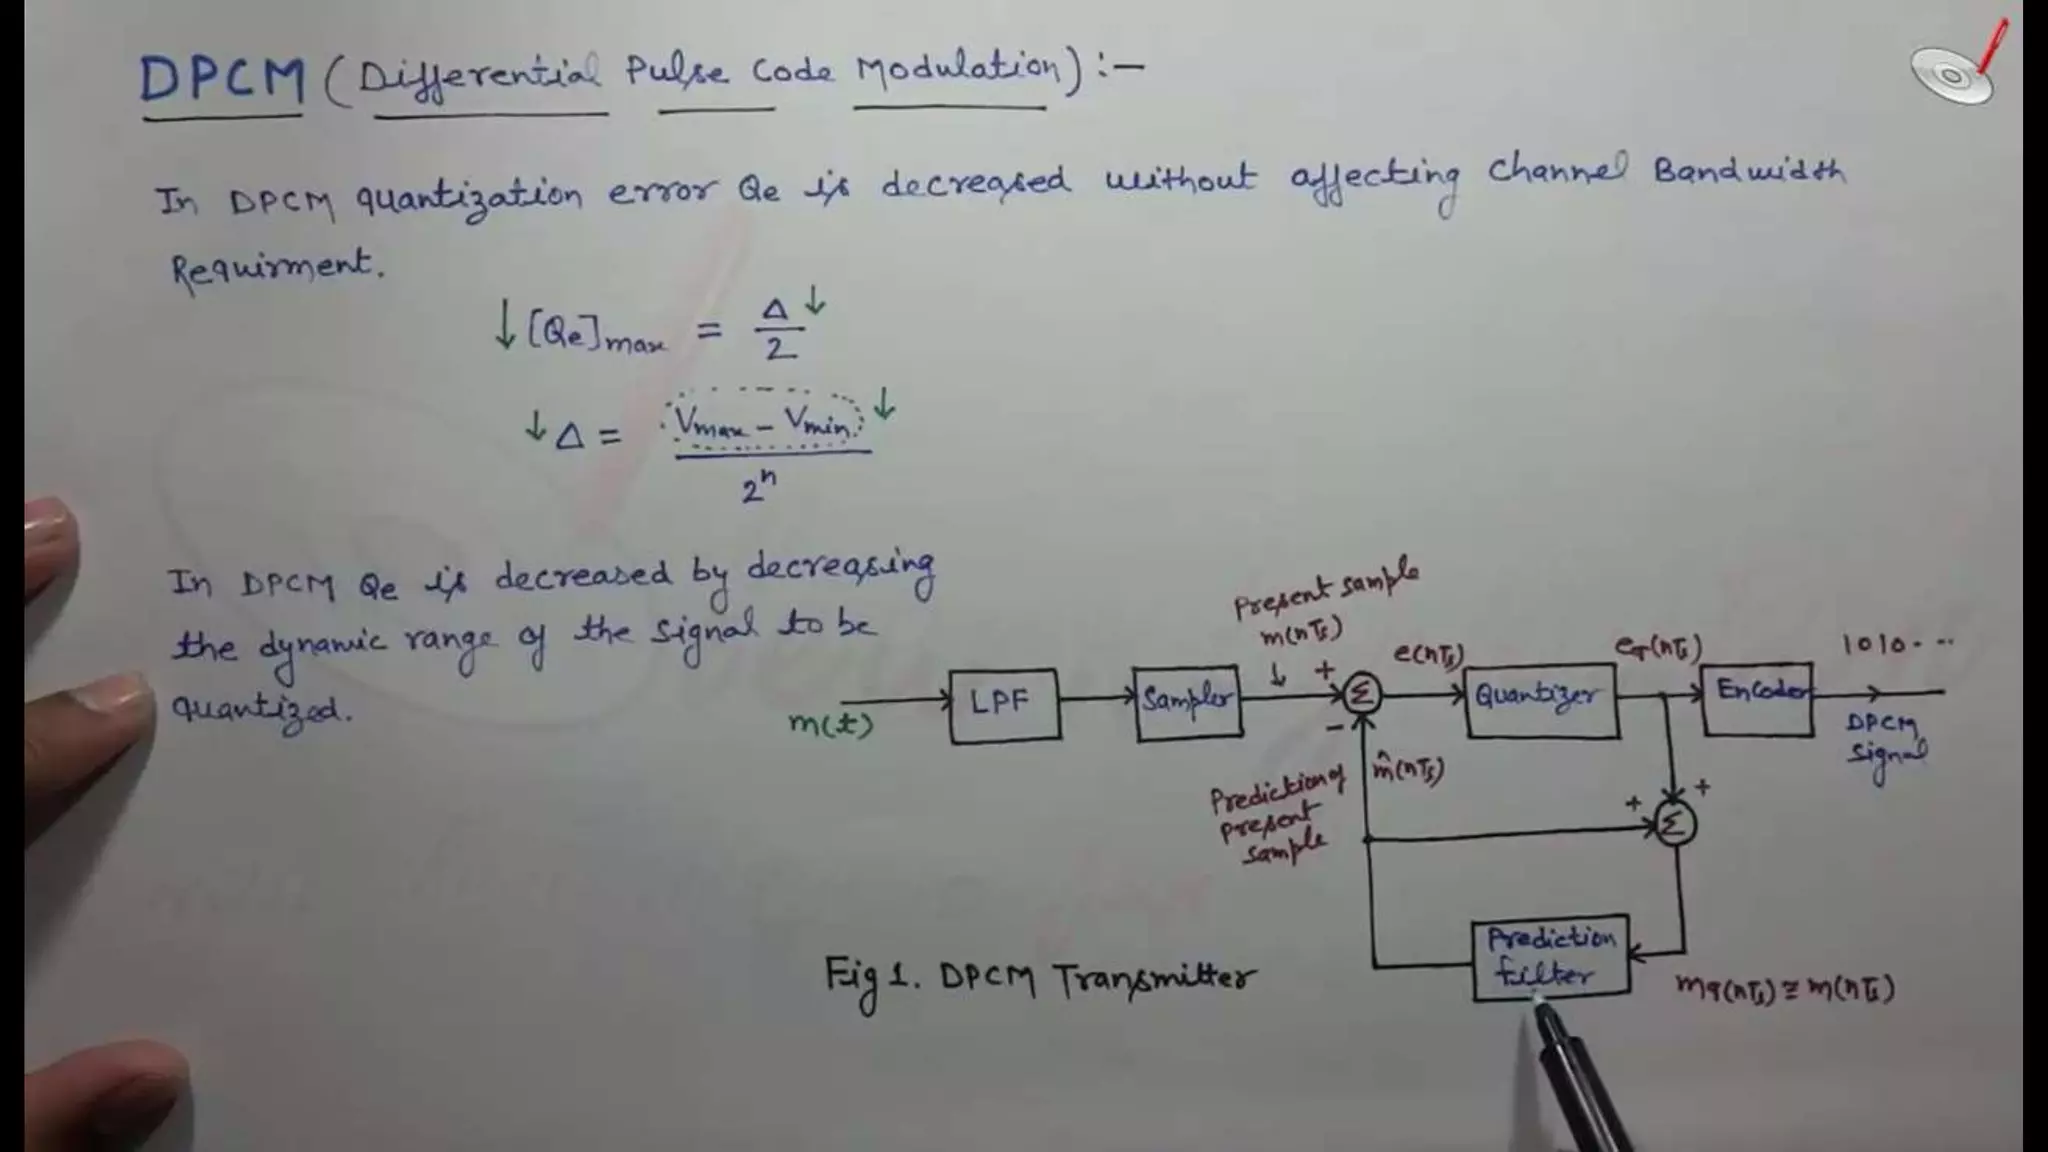 DPCM (Differential Pulse Code Modulation) :-
In DPCM quantization error Qe is decreased without affecting channel Bandwidth
Requirment.
↓ [Qe]max = Δ↓
2
↓ Δ = Vmax - Vmin ↓
2ⁿ
In DPCM Qe is decreased by decreasing
the dynamic range of the signal to be
quantized.
Present sample
m(nTs)
↓
m(t)
LPF
Sampler
+
Σ
-
e(nTs)
Quantizer
eq(nTs)
Encoder
1010...
DPCM
Signal
m̂(nTs)
Prediction of
present
sample
+
+
Σ
Prediction
filter
mq(nTs) ≅ m(nTs)
Fig 1. DPCM Transmitter